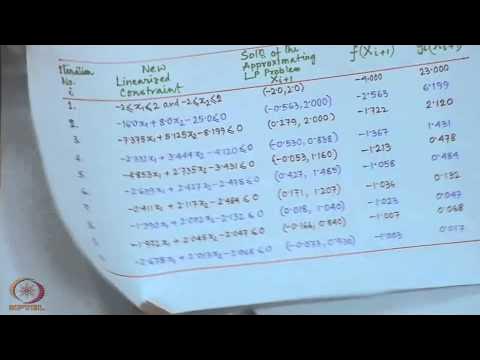 Iteration No. i New Linearized Constraint Soln of the Approximating LP Problem Xi+1 f(Xi+1) g1(Xi+1)
1. -2≤x1≤2 and -2≤x2≤2 (-2.0, 2.0) -4.000 23.000
2. -16.0x1+8.0x2-25.0≤0 (-0.563, 2.000) -2.563 6.199
3. -7.375x1+5.125x2-8.199≤0 (0.279, 2.000) -1.722 2.120
4. -2.332x1+3.444x2-4.120≤0 (-0.530, 0.838) -1.367 1.431
5. -4.853x1+2.735x2-3.431≤0 (-0.053, 1.160) -1.213 0.478
6. -2.639x1+2.427x2-2.478≤0 (0.427, 1.485) -1.058 0.484
7. -0.411x1+2.117x2-2.484≤0 (0.171, 1.207) -1.036 0.132
-1.390x1+2.072x2-2.132≤0 (0.018, 1.040) -1.023 0.047
-1.972x1+2.045x2-2.047≤0 (-0.166, 0.840) -1.007 0.068
-2.678x1+2.013x2-2.068≤0 (-0.073, 0.930) -1.003 0.017